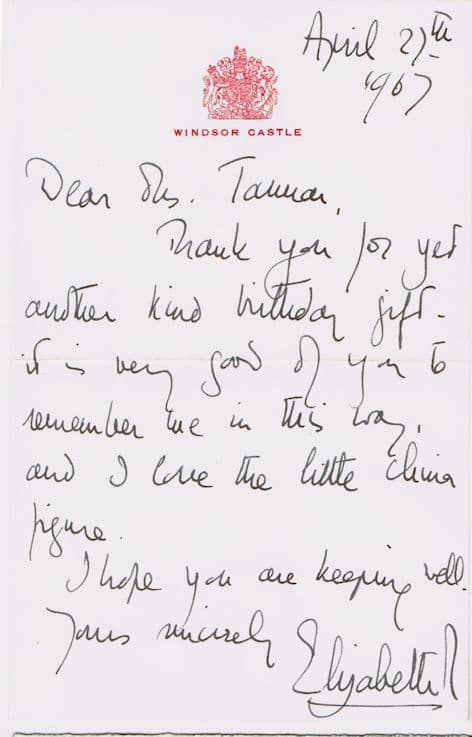 April 27th
1967
WINDSOR CASTLE
Dear Mrs. Tannar,
Thank you for yet
another kind birthday gift -
it is very good of you to
remember me in this way,
and I love the little china
figure.
I hope you are keeping well.
Yours sincerely
Elizabeth R